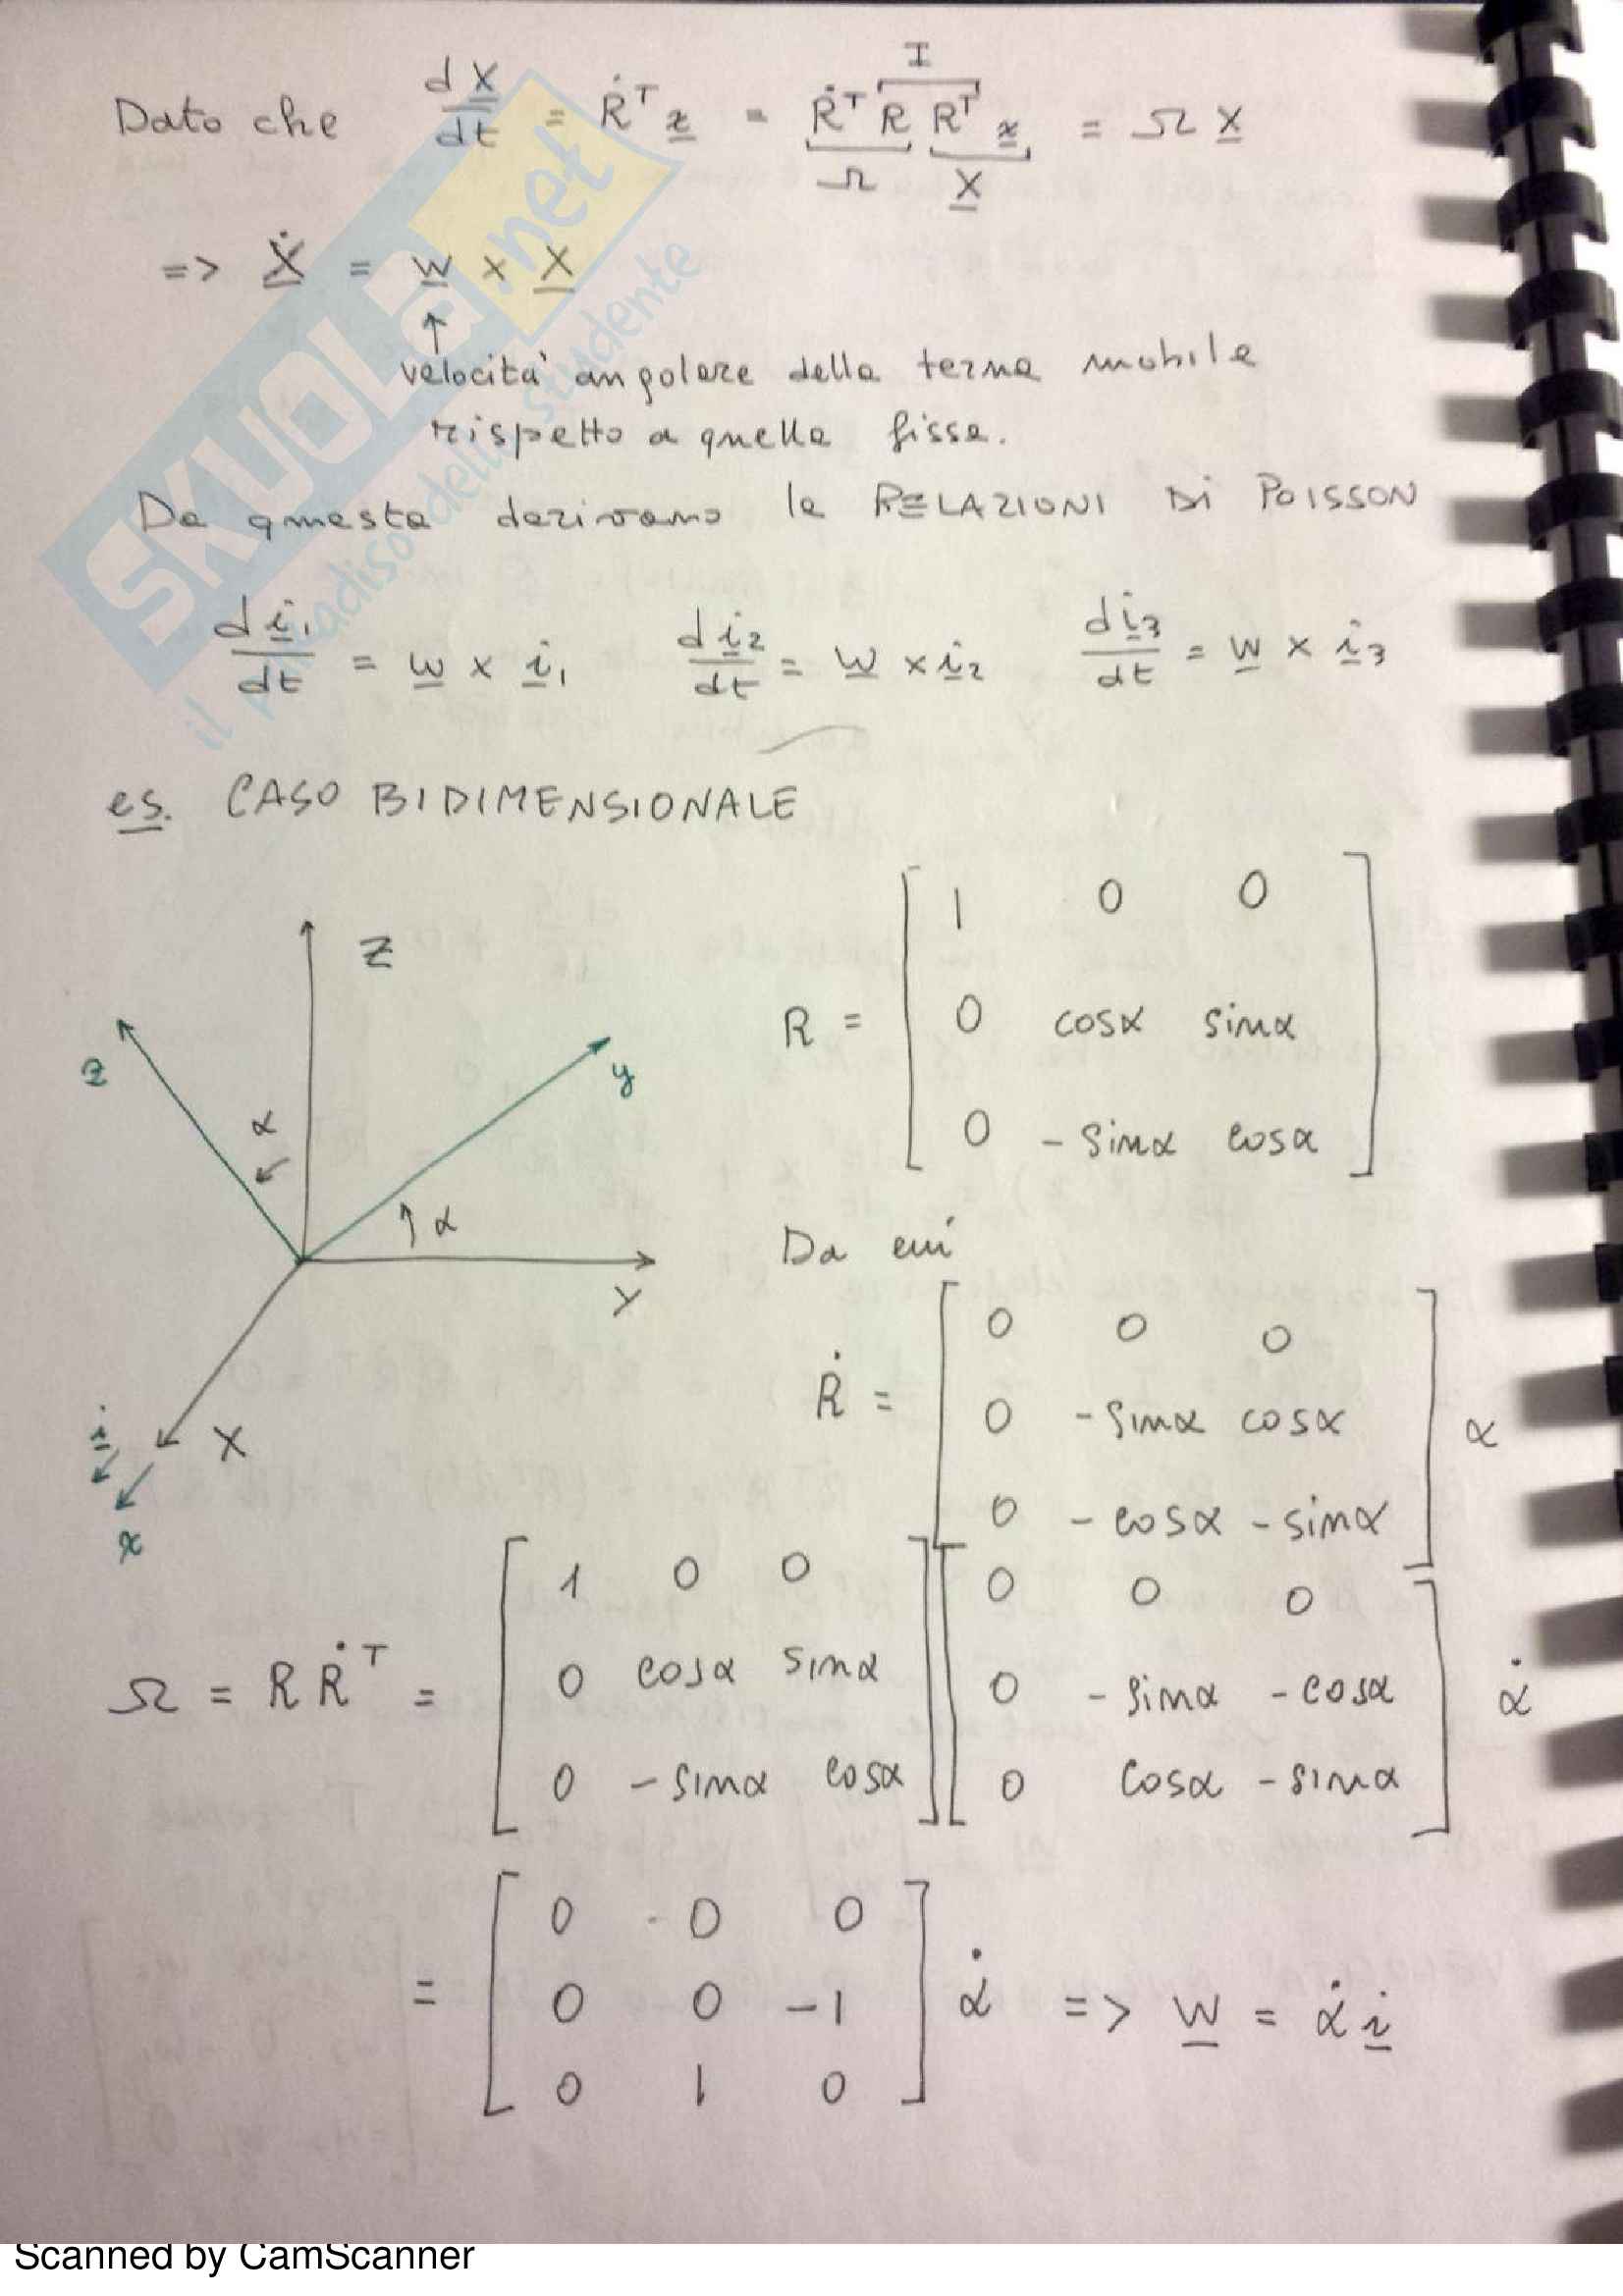 Dato che dX/dt = Ṙᵀ x = Ṙᵀ R Rᵀ x = Ω X
I
Ω X
=> Ẋ = w × X
↑
velocità angolare della terna mobile
rispetto a quella fissa.
Da questa derivano le RELAZIONI DI POISSON
di₁/dt = w × i₁ di₂/dt = w × i₂ di₃/dt = w × i₃
es. CASO BIDIMENSIONALE
Z
z
y
α
α
Y
X
i
x
R = [ 1 0 0
0 cosα sinα
0 -sinα cosα ]
Da cui
Ṙ = [ 0 0 0
0 -sinα cosα
0 -cosα -sinα ] α
Ω = R Ṙᵀ = [ 1 0 0
0 cosα sinα
0 -sinα cosα ] [ 0 0 0
0 -sinα -cosα
0 cosα -sinα ] α̇
= [ 0 0 0
0 0 -1
0 1 0 ] α̇ => w = α̇ i
SKUOLA.net
il paradiso dello studente
Scanned by CamScanner